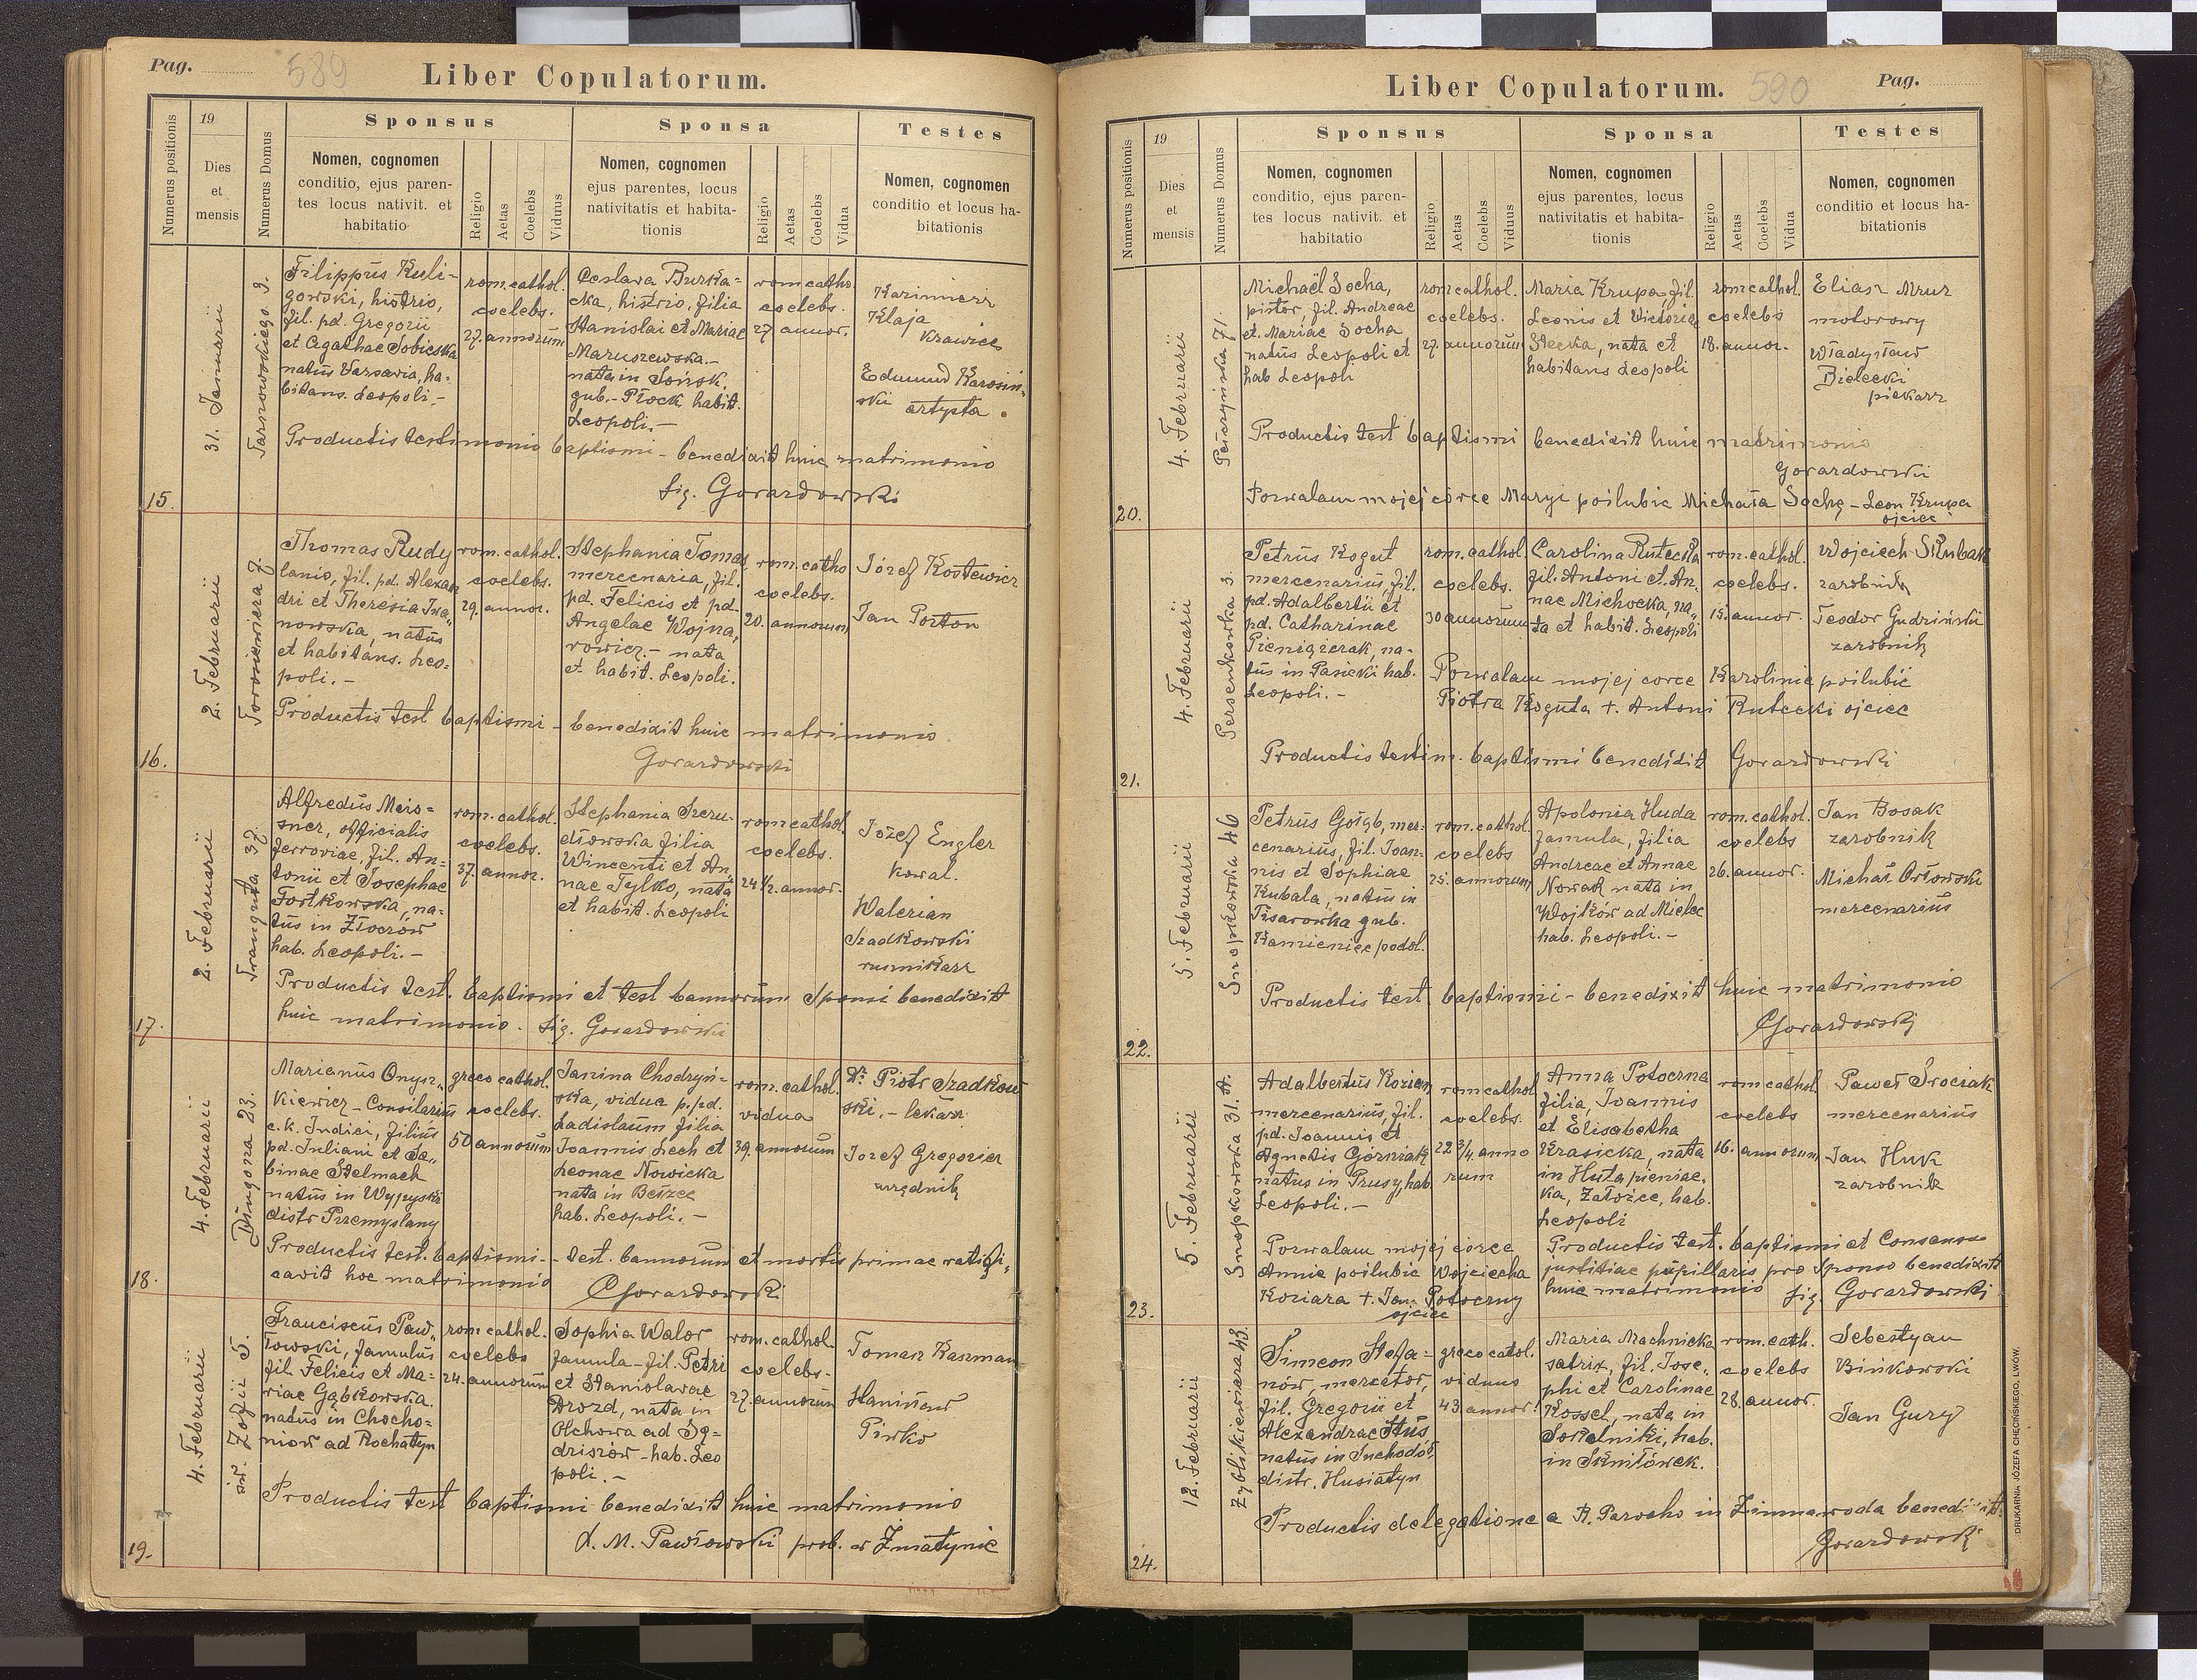 Pag. 589
Liber Copulatorum.
Numerus positionis
19
Dies
et
mensis
Numerus Domus
Sponsus
Nomen, cognomen
conditio, ejus paren-
tes locus nativit. et
habitatio
Religio
Aetas
Coelebs
Viduus
Sponsa
Nomen, cognomen
ejus parentes, locus
nativitatis et habita-
tionis
Religio
Aetas
Coelebs
Vidua
Testes
Nomen, cognomen
conditio et locus ha-
bitationis
15.
31. Januarii
Tarnowskiego 9.
Filippus Kuli-
gowski, histrio,
fil. pd. Gregorii
et Agathae Sobieska
natus Varsavia, ha-
bitans. Leopoli.-
rom. cathol.
coelebs.
27. annorum
Ceslava Burka-
cka, histrio, filia
Stanislai et Mariae
Maruszewska.-
nata in Sońsk.
gub.- Płock habit.
Leopoli.-
rom catho.
coelebs.
27. annor.
Kazimierz
Klaja
Krawiec
Edmund Karasiń-
ski artysta.
Productis testimonio baptismi - benedixit huic matrimonio
sig. Gorazdowski
16.
2. Februarii
Torosiewicza 7.
Thomas Rudy
lanio, fil. pd. Alexan
dri et Theresia Iwa„
nowska, natus
et habitans. Leo-
poli.-
rom. cathol.
coelebs.
29. annor.
Stephania Tomas
mercenaria, fil.
pd. Felicis et pd.
Angelae Wojna,
rowicz.- nata
et habit. Leopoli.
rom. catho
coelebs.
20. annorum,
Józef Kostewicz
Jan Porton
Productis test baptismi - benedixit huic matrimonio
Gorazdowski
17.
2. Februarii
Trauguta 37.
Alfredus Meis-
sner, officialis
ferroviae, fil. An-
tonii et Josephae
Fortkowska, na-
tus in Złoczow
hab. Leopoli.-
rom. cathol.
coelebs.
37. annor.
Stephania Szeru-
dłowska filia
Wincenti et An,
nae Tylko, nata
et habit. Leopoli
rom cathol.
coelebs.
24 1/2. annor.
Józef Engler
Kowal.
Walerian
Szadkowski
rusnikarz
Productis test. baptismi et test bannorum Sponsi benedixit
huic matrimonio. sig. Gorazdowski
18.
4. Februarii
Długosza 23.
Marianus Onysz„
kiewicz - Consilarius
c. k. Judici, filius
pd. Juliani et Sa„
binae Stelmach
natus in Wypyski
distr Przemyslany
greco cathol.
coelebs.
50 annorum
Janina Chodzyń-
ska, vidua p. pd.
Ladislaum filia
Joannis Lech et
Leonae Nowicka
nata in Bełzec
hab. Leopoli.-
rom. cathol.
vidua
39. annorum
Dr. Piotr Szadkow
ski.- lekarz
Jozef Gregowicz
urzędnik
Productis test. baptismi.- test. bannorum et mortis primae ratifi„
cavit hoc matrimonio
Gorazdowski
19.
4. Februarii
św. Zofii 5.
Franciscus Paw„
łowski, famulus
fil. Felicis et Ma-
riae Gąbkowska.
natus in Chocho-
niow ad Rochatyn
rom cathol.
coelebs
24. annorum
Sophia Walor
famula - fil. Petri
et Stanislavae
Drozd, nata in
Olchowa ad Sę-
dziszów - hab. Leo
poli.-
rom. cathol.
coelebs-
27. annorum
Tomasz Kaszman
Stanisław
Piwko
Productis test baptismi benedixit huic matrimonio
X. M. Pawłowski prob. w Zmatynie
Liber Copulatorum.
590 Pag.
Numerus positionis
19
Dies
et
mensis
Numerus Domus
Sponsus
Nomen, cognomen
conditio, ejus paren-
tes locus nativit. et
habitatio
Religio
Aetas
Coelebs
Viduus
Sponsa
Nomen, cognomen
ejus parentes, locus
nativitatis et habita-
tionis
Religio
Aetas
Coelebs
Vidua
Testes
Nomen, cognomen
conditio et locus ha-
bitationis
20.
4. Februarii
Pełczyńska 71.
Michaël Socha,
pistor, fil. Andreae
et Mariae Socha
natus Leopoli et
hab Leopoli
rom cathol.
coelebs.
27. annorum
Maria Krupa, fil.
Leonis et Victoria
Stecka, nata et
habitans Leopoli
rom cathol.
coelebs
18. annor.
Eliasz Mruz
motorowy
Władysław
Bielecki
piekarz
Productis test baptismi benedixit huic matrimonio
Gorazdowski
Pozwalam mojej córce Maryi poślubic Michała Sochę - Leon Krupa
ojciec
21.
4. Februarii
Persenkowka 3.
Petrus Kogut
mercenarius, fil.
pd. Adalbertii et
pd. Catharinae
Pieniążerak, na-
tus in Pasieki hab.
Leopoli.-
rom. cathol
coelebs.
30 annorum
Carolina Rutecka
fil. Antoni et An,
nae Michocka, na„
ta et habit. Leopoli
rom. cathol.
coelebs.
15. annor.
Wojciech Skubak
zarobnik
Teodor Gudziński
zarobnik
Pozwalam mojej corce Karolinie poślubić
Piotra Koguta +. Antoni Rutecki ojciec
Productis testim. baptismi benedixit Gorazdowski
22.
5. Februarii
Snopkowska 46
Petrus Gołąb, mer-
cenarius, fil. Joan-
nis et Sophiae
Kubala, natus in
Pisarowka gub.
Kamieniec podol.
rom. cathol.
coelebs
25. annorum
Apolonia Huda
famula, filia
Andreae et Annae
Nowak nata in
Wojków ad Mielec
hab. Leopoli.-
rom. cathol.
coelebs
26. annor.
Jan Bosak
zarobnik
Michał Orłowski
mercenariüs
Productis test. baptismi - benedixit huic matrimonio
Gorazdowski
23.
5. Februarii
Snopkowska 31. A.
Adalbertus Koziar,
mercenarius, fil.
pd. Joannis et
Agnetis Górniak
natus in Prusy, hab.
Leopoli.-
rom cathol
coelebs.
22 3/4. anno
rum
Anna Potoczna
filia, Joannis
et Elisabetha
Krasicka, nata
in Huta pieniac.
ka, Załoźce, hab.
Leopoli
rom cathol.
coelebs
16. annorum
Paweł Srociak
mercenarius
Jan Huk
zarobnik
Pozwalam mojej corce
Annie poślubic Wojciecha
Koziara +. Jan Potoczny
ojciec
Productis test. baptismi et Consensu
justitiae pupillaris pro Sponso benedixit
huic matrimonio sig. Gorazdowski
24.
12. Februarii
Zyblikiewicza 43.
Simeon Stefa-
nów, mercator,
fil. Gregorii et
Alexandrae Stus
natus in Suchodół,
distr. Husiatyn
greco catol.
viduus
43 annor.
Maria Machnicka
satrix, fil. Jose„
phi et Carolinae
Kossel, nata in
Sokolniki, hab.
in Skniłówek.
rom. cath.
coelebs
28. annor.
Sebestyan
Binkowski
Jan Gury
Productis delegatione a R. Parocho in Zimnawoda benedixit.
Gorazdowski
DRUKARNIA JÓZEFA CHĘCIŃSKIEGO, LWÓW.